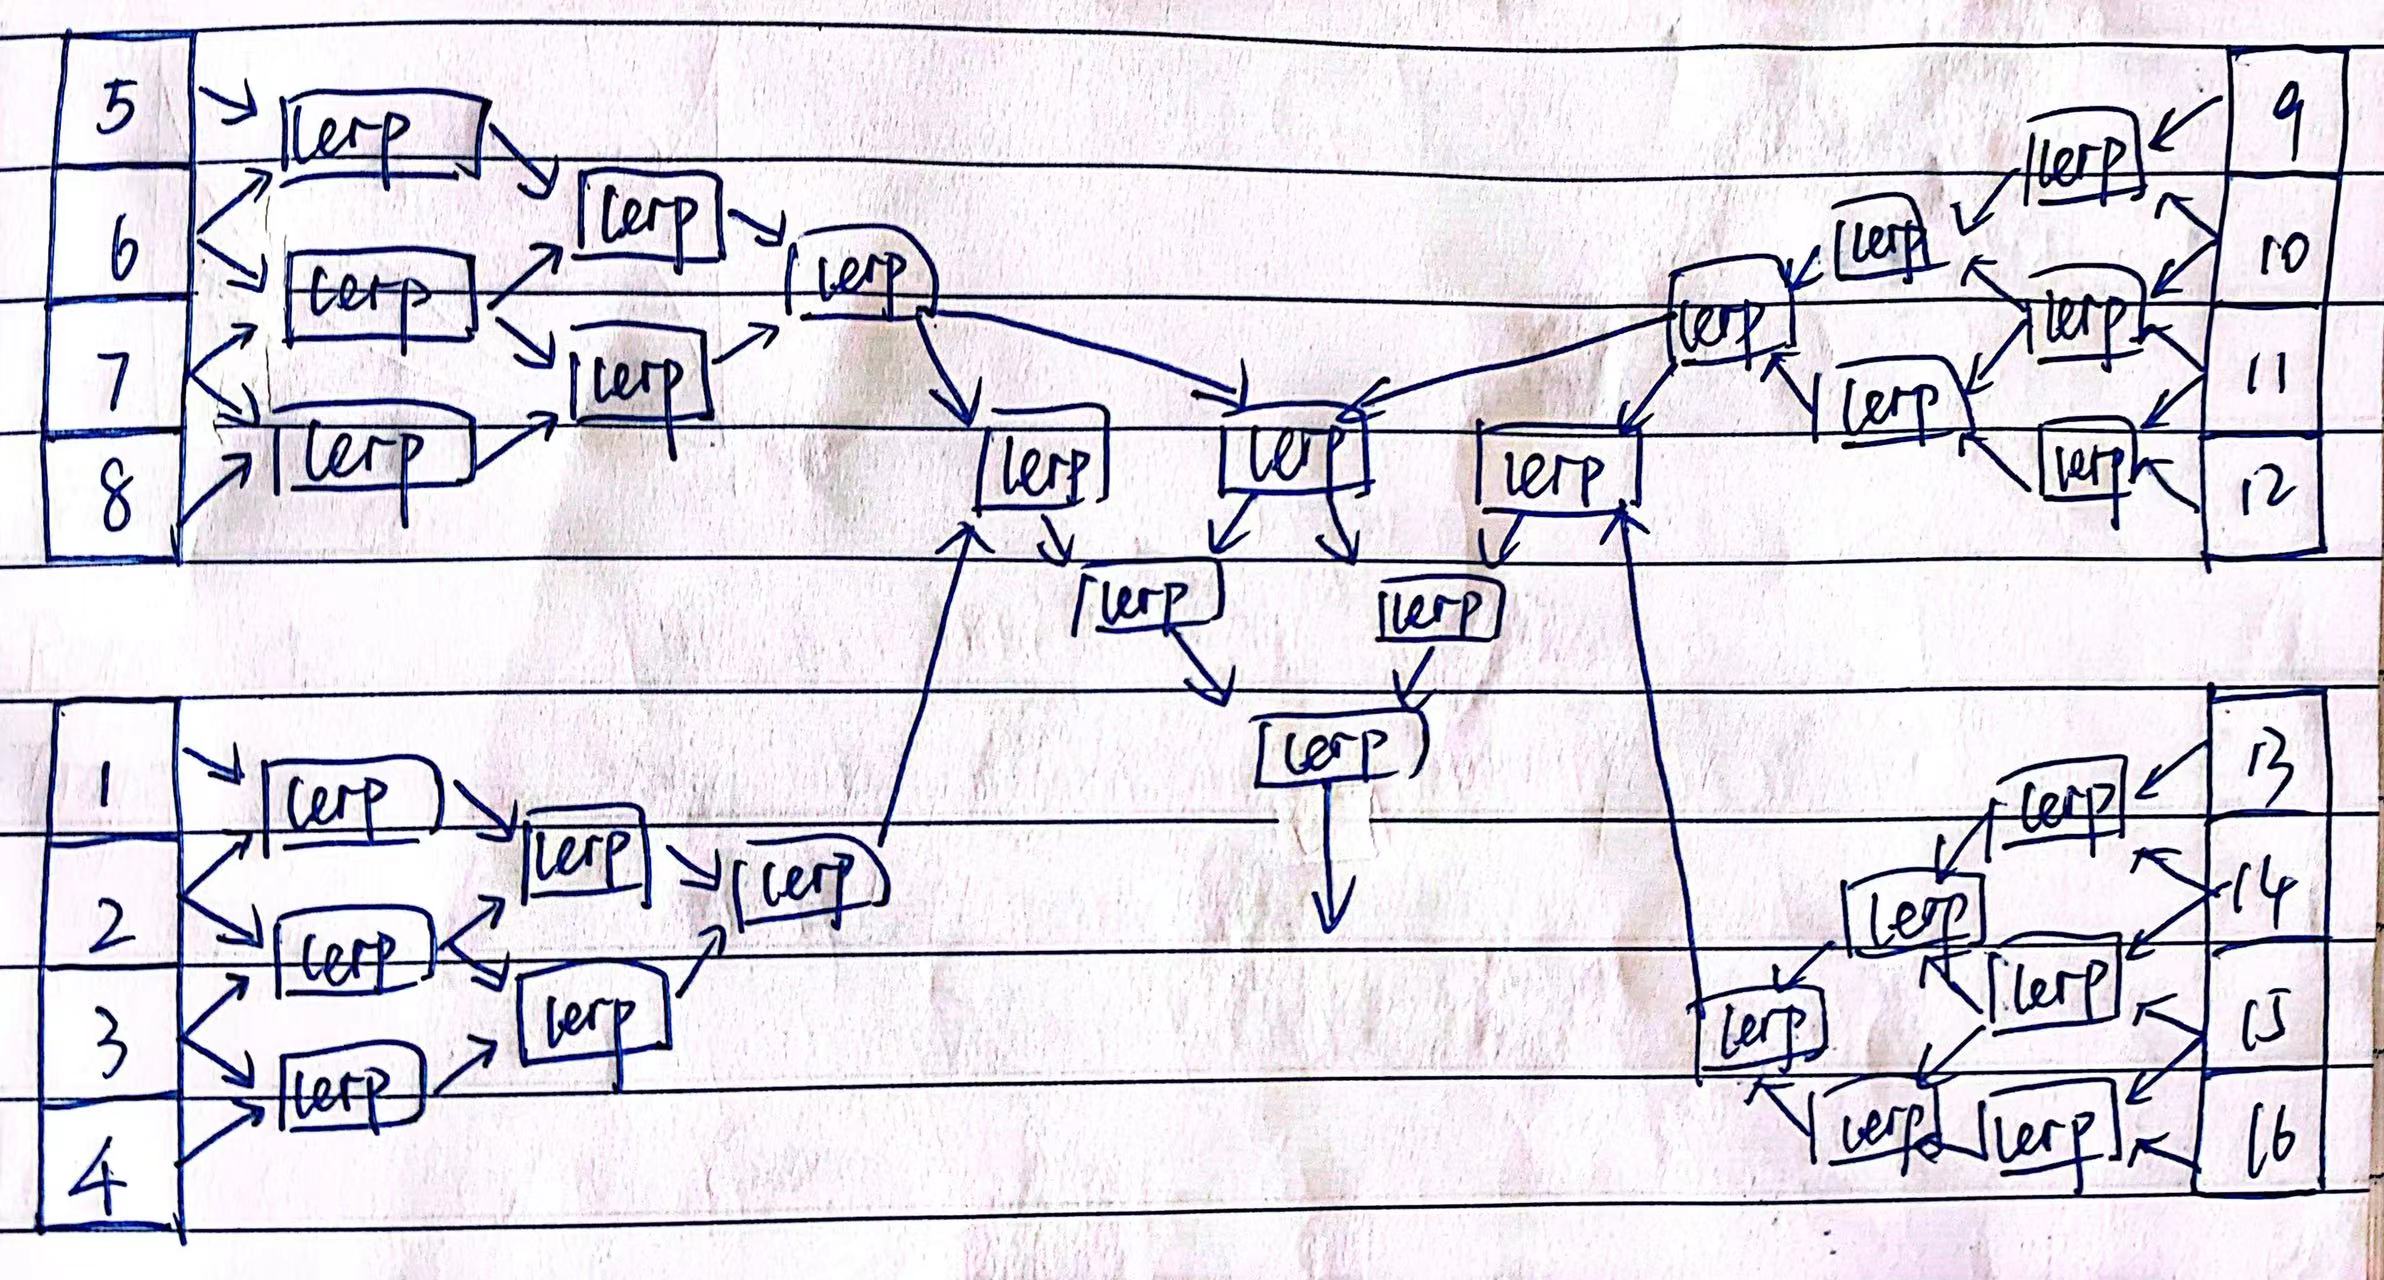 5
6
7
8
lerp
lerp
lerp
lerp
lerp
lerp
9
10
11
12
lerp
lerp
lerp
lerp
lerp
lerp
lerp
lerp
lerp
lerp
lerp
lerp
1
2
3
4
lerp
lerp
lerp
lerp
lerp
lerp
13
14
15
16
lerp
lerp
lerp
lerp
lerp
lerp